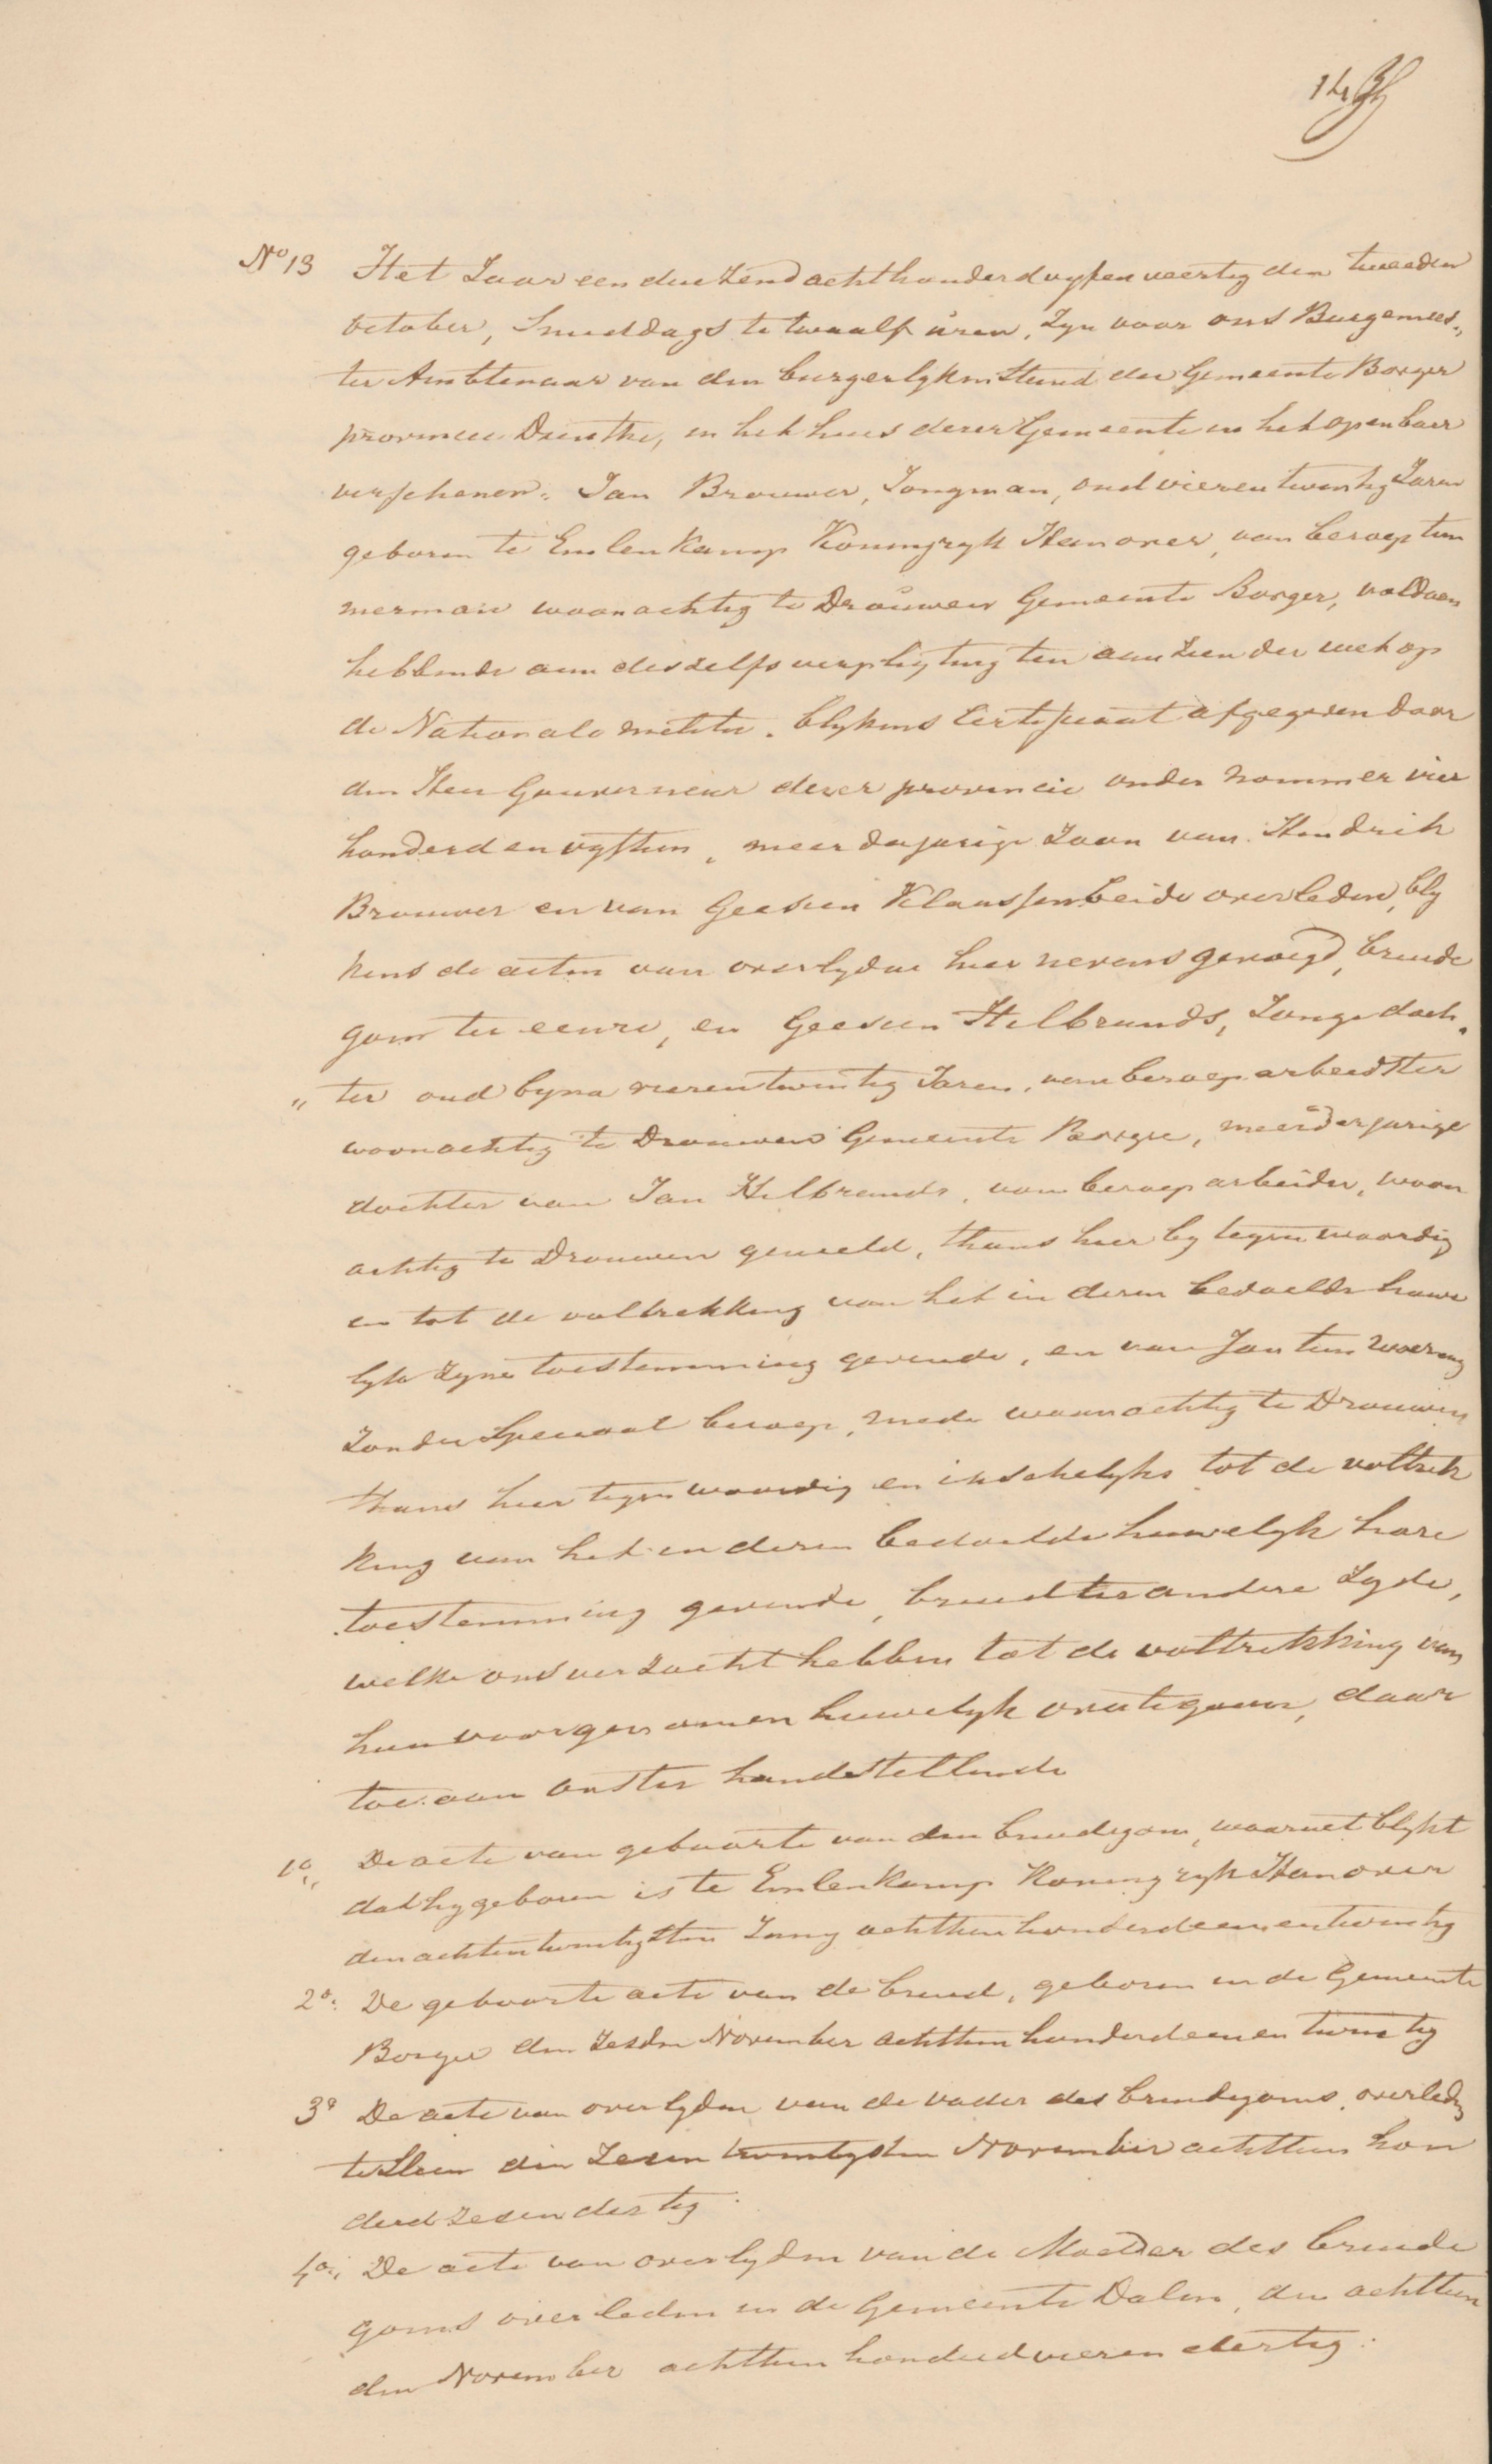 14
No 13 Het Jaar een duizend achthonderd vyf en veertig den tweeden
October, Smiddags te twaalf uren, Zyn voor ons Burgemees„
ter Ambtenaar van den burgerlyken Stand der Gemeente Borger
provincie Drenthe, in het huis dezer Gemeente in het openbaar
verschenen: Jan Brouwer, Jongman, oud vierentwintig Jaren
geboren te Emlenkamp Koningryk Hanover, van beroep tim
merman woonachtig te Drouwen Gemeente Borger, voldaan
hebbende aan deszelfs verpligting ten aanzien der wet op
de Nationale militie, blykens Certificaat afgegeven door
den Heer Gouverneur dezer provincie onder nommer vier
honderd en vyftien, meerderjarige Zoon van Hendrik
Brouwer en van Geesien Klaassen beide overleden, bly
kens de acten van overlyden hier nevens gevoegd, bruide
gom ter eenre, en Geesien Hilbrands, Jonge doch„
„ ter oud byna vierentwintig Jaren, van beroep arbeidster
woonachtig te Drouwen Gemeente Borger, meerderjarige
dochter van Jan Hilbrands, van beroep arbeider, woon
achtig te Drouwen gemeld, thans hier by tegenwoordig
en tot de voltrekking van het in dezen bedoelde huwe
lyk Zyne toestemming gevende, en van Jantien
Zonder Speciaal beroep, mede woonachtig te Drouwen
thans hier tegenwoordig en inschelyks tot de voltrek
king van het in dezen bedoelde huwelyk hare
toestemming gevende, bruid ter andere Zyde,
welke ons verzocht hebben tot de voltrekking van
hun voorgenomen huwelyk overtegaan, daar
toe aan ons ter hand stellende
1o„ De acte van geboorte van den bruidegom, waaruit blykt
dat hy geboren is te Emlenkamp Koningryk Hanover
den achtentwintigsten Juny achttienhonderdeenentwintig
2o: De geboorte acte van de bruid, geboren in de Gemeente
Borger den Zesden November achttienhonderdeenentwintig
3o De acte van overlyden van de vader des bruidegoms, overleden
te Sleen den Zesentwintigsten November achttien hon
derd Zesendertig:
4o„ De acte van overlyden van de Moeder des bruide
goms overleden in de Gemeente Dalen, den achttien
den November achttien honderd vierendertig: